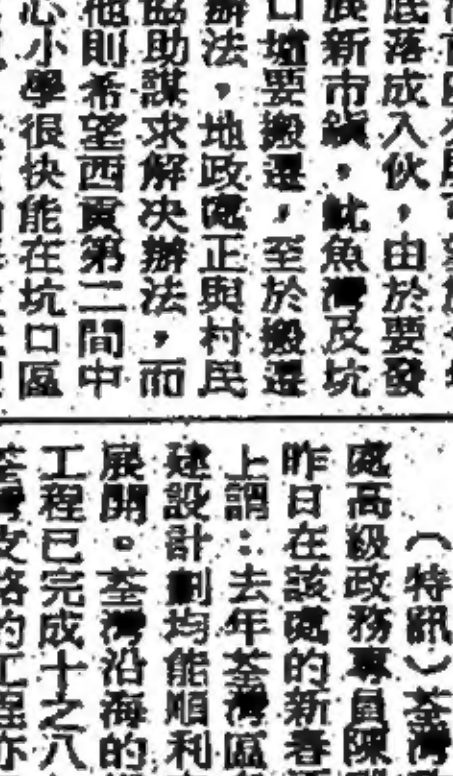 底落成入伙，由於要發
展新市鎮，魷魚灣及坑
口墟要搬遷，至於搬遷
辦法，地政處正與村民
協助謀求解决辦法，而
他則希望西貢第二間中
心小學很快能在坑口區
（特訊）荃灣
處高級政務專員陳
昨日在該處的新春
上謂：去年荃灣區
建設計劃均能順利
展開。荃灣沿海的
工程已完成十之八
荃灣支路的工程亦